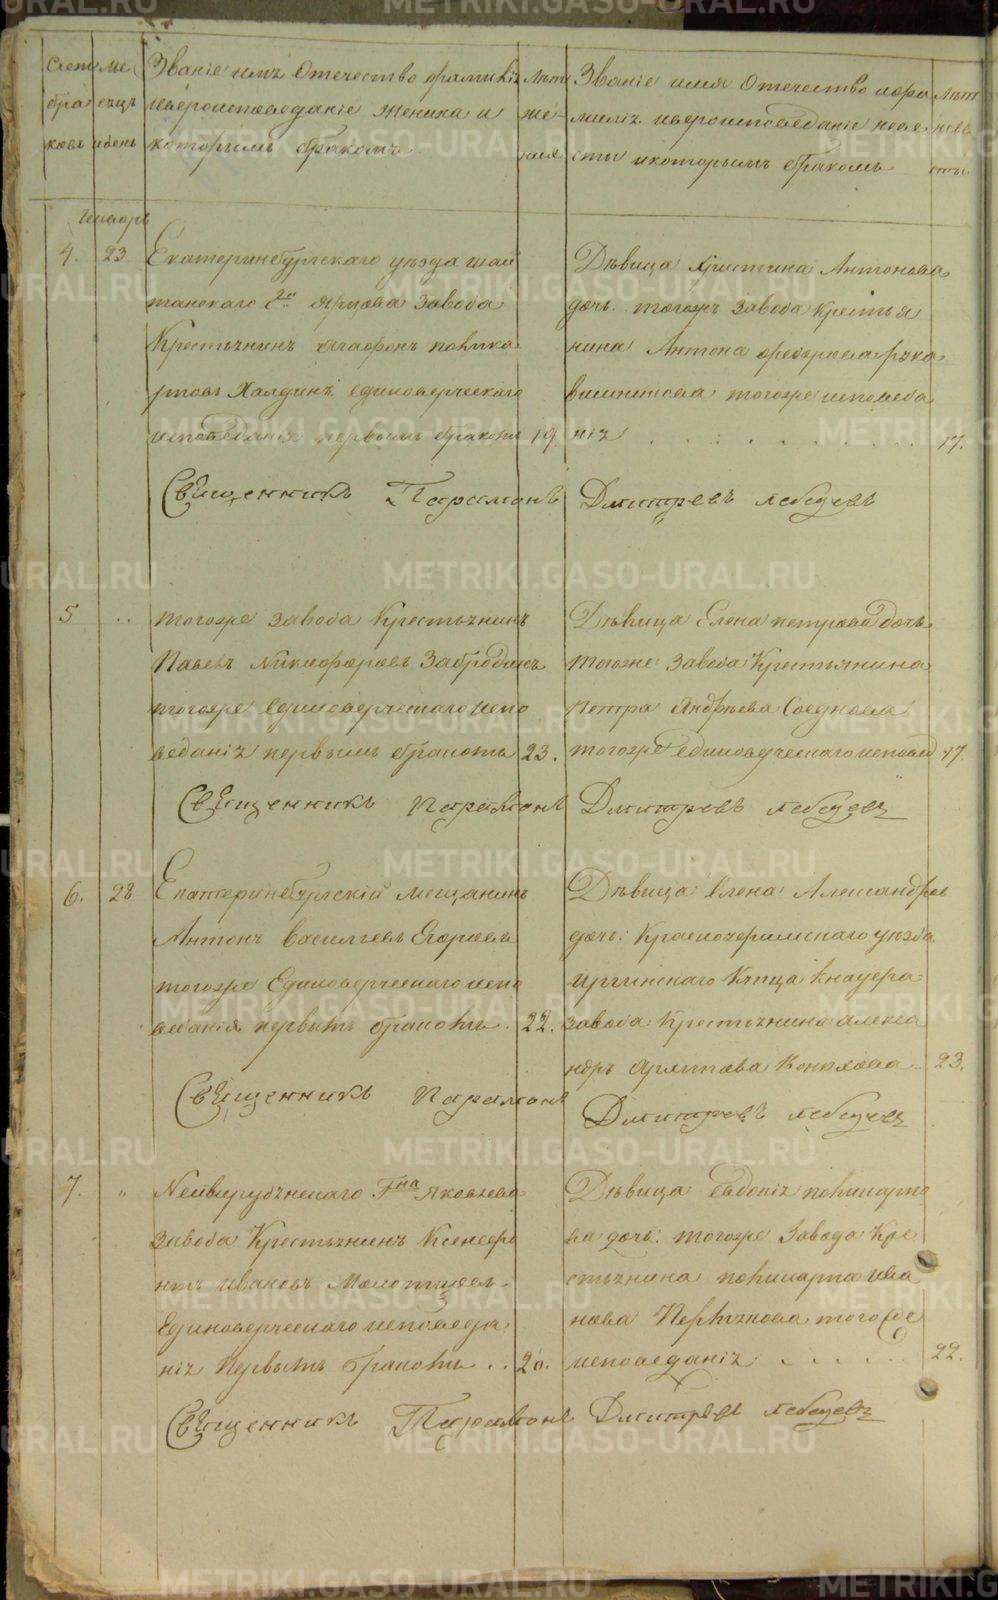 Счет
бра
ковъ
Ме
сецъ
и день
Званіе имя Отечество фамилія
и вероисповеданіе жениха и
которымъ бракомъ
Лѣта
же
ниха
Званіе имя Отечество и фа
милія и вероисповеданіе неве
сты и которымъ бракомъ
Лѣт
неве
сты
Генварь
4. 23
Екатеринбургскаго уѣзда шай
танскаго Г-на Ярцова завода
Крестьянинъ Агафонъ поликар
повъ Халдинъ единоверческаго
исповеданія первымъ бракомъ 19
Дѣвица Христина Антонова
дочь. тогожъ завода крестья
нина Антона
тогоже исповеда
нія 17.
Священникъ Парамонъ Дмитревъ лебедевъ
5 ..
тогоже завода Крестьянинъ
Павелъ Никифоровъ Забродинъ
тогоже единоверческаго испо
веданія первымъ бракомъ 23.
Дѣвица Елена петрова дочь
тогоже завода Крестьянина
Петра Андрѣева
тогоже единоверческаго исповед 17.
Священникъ Парамонъ Дмитревъ лебедевъ
6. 28
Екатеринбургскій мещанинъ
Антонъ васильевъ Егоровъ
тогоже Единоверческаго испо
веданія первымъ бракомъ . 22.
Дѣвица елена Александров
дочь: Красноуфимскаго уѣзда
иргинскаго Купца кнауфа
завода Крестьянина алекса
ндръ Конюхова 23.
Священникъ Парамонъ
Дмитревъ лебедевъ
7. "
Нейвирудянскаго Г-на Яковлева
завода Крестьянинъ Ксенофо
нтъ ивановъ
Единоверческаго исповеда
нія первымъ бракомъ .. 20.
Дѣвица евдокія поликарпо
ва дочь: тогоже завода Кре
стьянина поликарпа ива
нова тогоже
исповеданія 22.
Священникъ Парамонъ Дмитревъ лебедевъ
METRIKI.GASO-URAL.RU